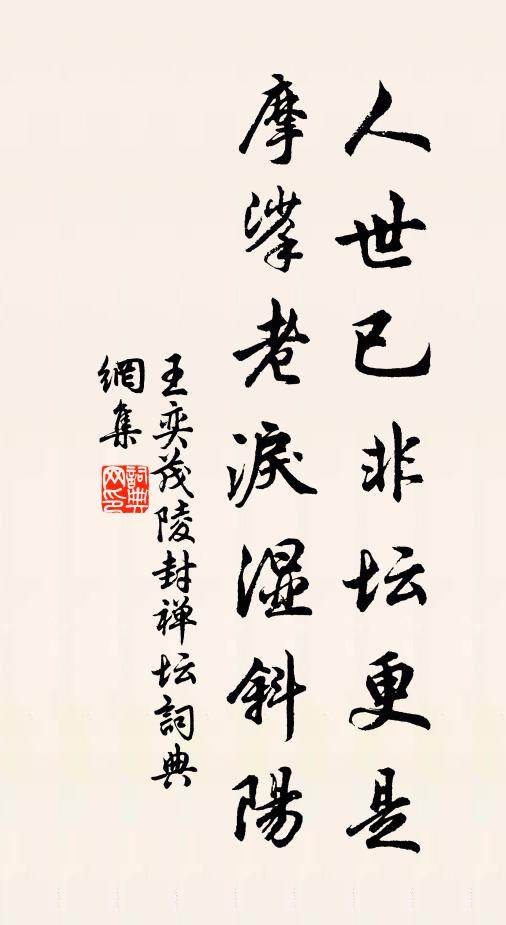 人世已非坛更是
摩挲老淚湿斜陽
王奕茂陵封禅坛詞典
網集
詞典
网印